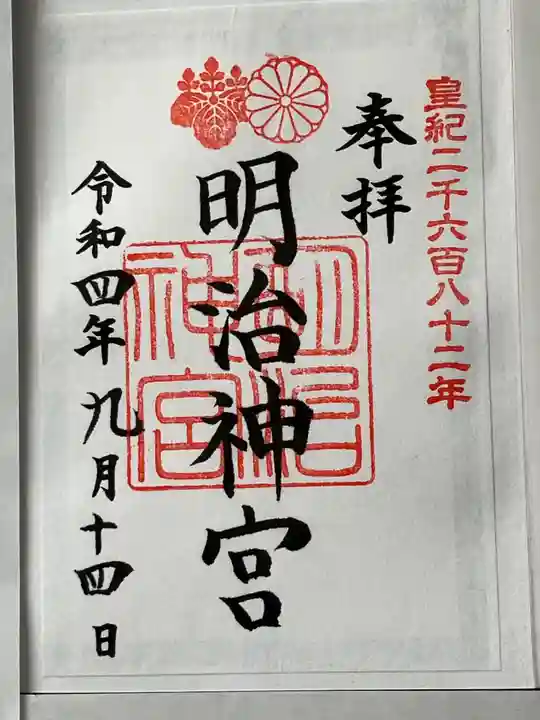 皇紀二千六百八十二年
奉拝
明治神宮
令和四年九月十四日
明治神宮